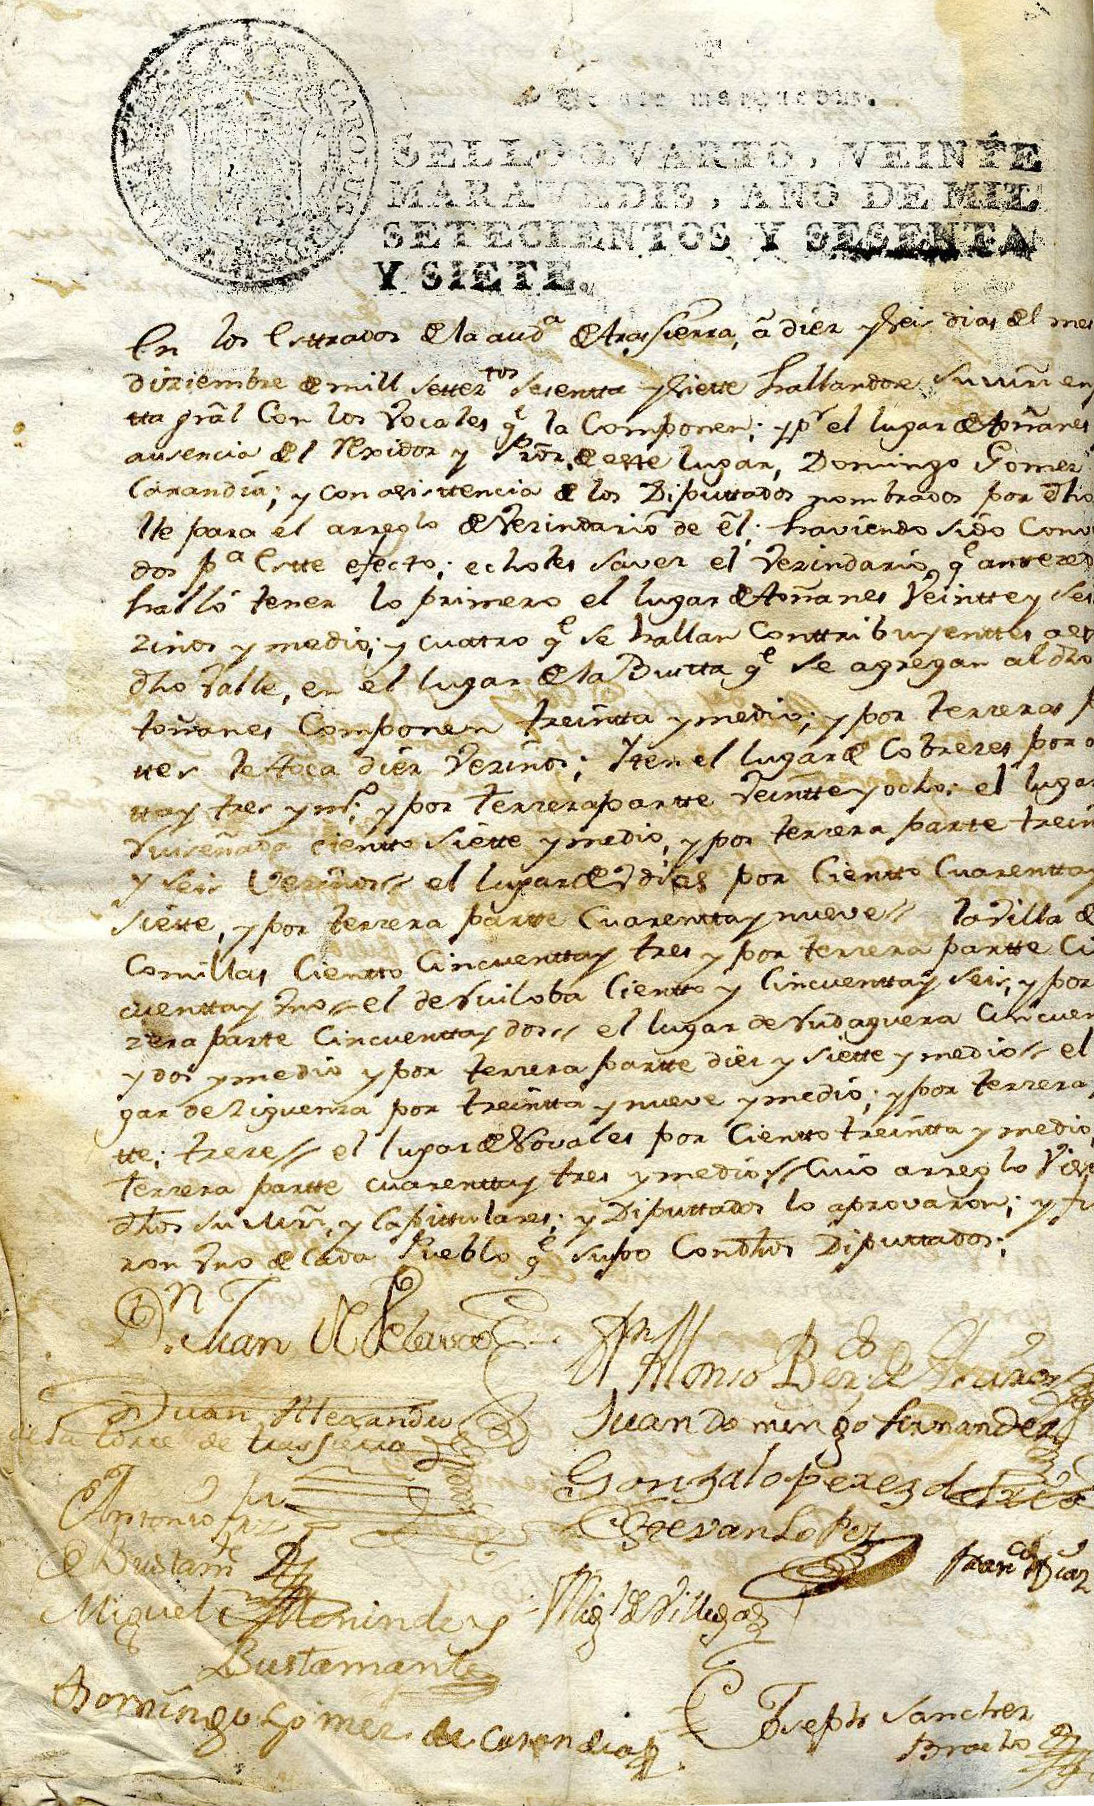 CAROLUS
Veinte maravedis.
SELLO QVARTO, VEINTE
MARAVEDIS, AÑO DE MIL
SETECIENTOS Y SESENTA
Y SIETE.
En los Estrados de la aud.ª de trassierra, â diez y seis dias del mes
diziembre de mill settez.tos sesentta y siette hallandose su mrd. en
tta grâl Con los Vocales q.e la Componen; y p.r el lugar de toñanes
ausencia del Rexidor y Prôr. de este lugar, Domingo Gomez
Carandia; y con asisttencia de los Diputtados nombrados por d̃ho
lle para el arreglo de Vezindario de êl; haviendo sido Conv
dos p.a Estte efecto; echoles saver el Vezindario, q.e
halló tener lo primero el lugar de toñanes Veintte y sei
zinos y medio; y cuatro q.e se hallan Conttribuyenttes
d̃ho Valle, en el lugar de la Busttta q.e se agregan al d̃ho
toñanes Componen treintta y medio; y por terzeras p
ttes le ttoca diez Vezinos; Yten el lugar de Cobrezes por o
tta y tres y m.o y por terzera partte Veintte y ocho; el lugar
Ruiseñada cientto siette y medio, y por terzera parte trein
y seis Vezinos el lugar de Vdias por Cientto Cuarentta y
siette, y por terzera partte Cuarentta y nueve la Villa de
Comillas Cientto Cincuentta y tres y por terzera partte Ci
cuentta y Vno el de Ruiloba Cientto y Cincuentta y seis; y por
zera parte Cincuentta y dos el lugar de Rudaguera Cincuen
y dos y medio y por terzera partte diez y siette y medio el
gar de Ziguenza por treintta y nueve y medio; y por terzera
tte; treze el lugar de Novales por Cientto treintta y medio,
terzera partte cuarentta y tres y medio; Cuio arreglo Vist
d̃hos su mrd., y Capittulares; y Diputtados lo aprovaron; y fi
ron Vno de Cada Pueblo q.e supo Con d̃hos Diputtados;
D.n Juan
Alonso
Juan Alexandro
de la torre de trassierra
Juan Domingo fernandez
Gonzalo perez del rio
Antonio
Estevan Lopez
de Bustam.te
Fran.co Diaz
Miguel Menindez
Mig.l de Villegas
Bustamante
Domingo gomez de carandia
Joseph Sanchez
Bracho